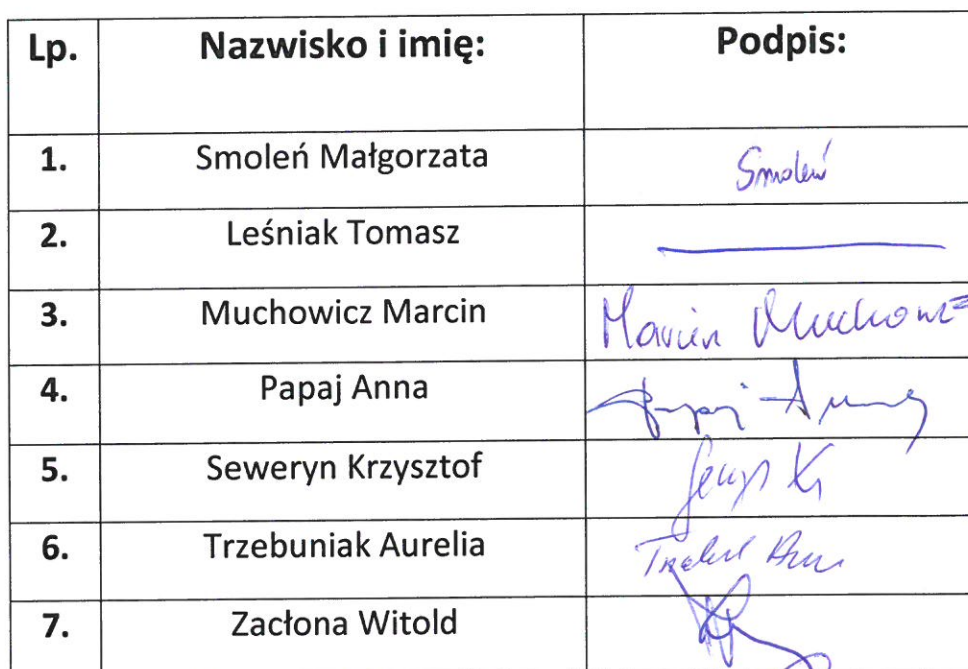 Lp. Nazwisko i imię: Podpis:
1. Smoleń Małgorzata Smoleń
2. Leśniak Tomasz
3. Muchowicz Marcin Marcin Muchowicz
4. Papaj Anna Papaj Anna
5. Seweryn Krzysztof
6. Trzebuniak Aurelia
7. Zacłona Witold